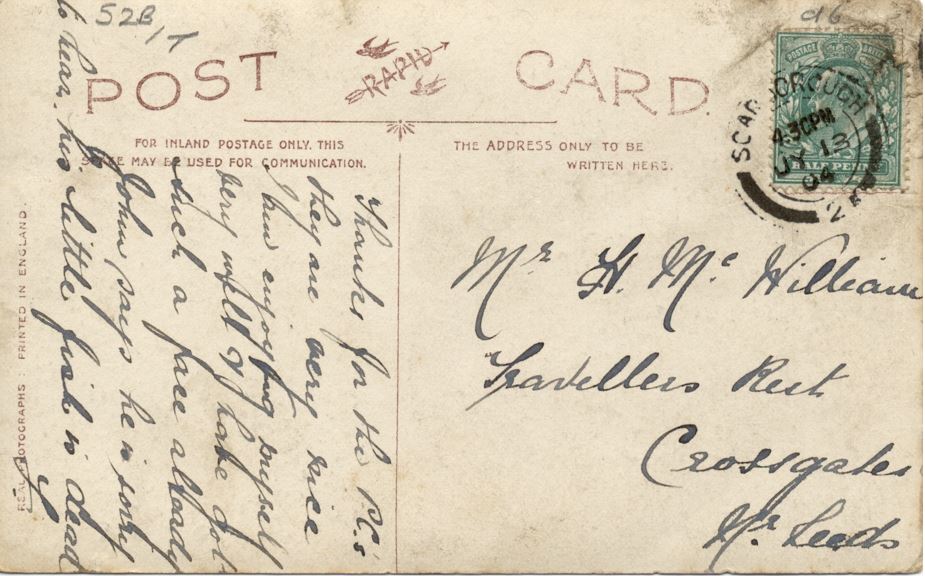 52B/1
d6
POST CARD
RAPID
FOR INLAND POSTAGE ONLY. THIS
SPACE MAY BE USED FOR COMMUNICATION.
THE ADDRESS ONLY TO BE
WRITTEN HERE.
POSTAGE
HALF PENNY
SCARBOROUGH
4.30PM
JY 13
04
Thanks for the P.C.'s
they are very nice
I am enjoying myself
very well I have got
such a face already
John says he is sorry
to hear his little fish is dead
Mr H. Mc William
Travellers Rest
Crossgates
Nr Leeds
REAL PHOTOGRAPHS : PRINTED IN ENGLAND.